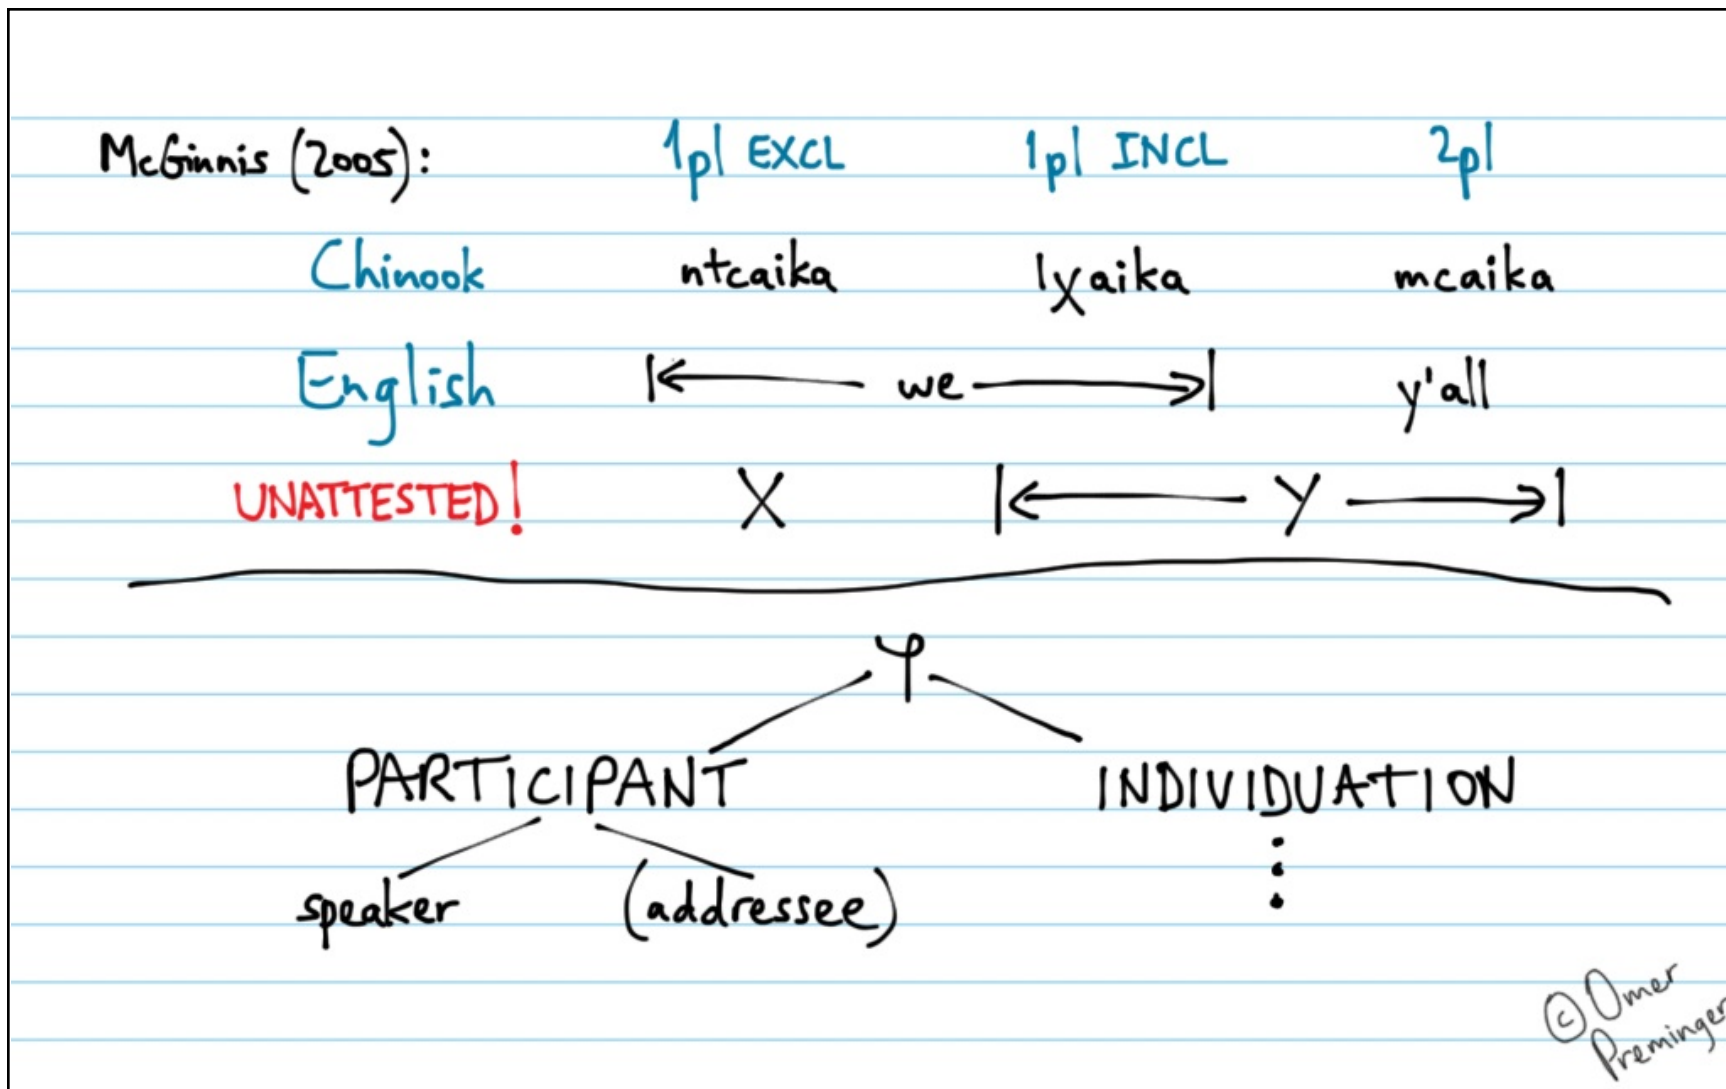 McGinnis (2005): 1pl EXCL 1pl INCL 2pl
Chinook ntcaika lχaika mcaika
English |← we →| y'all
UNATTESTED! X |← Y →|
φ
PARTICIPANT INDIVIDUATION
speaker (addressee) ⋮
© Omer
Preminger